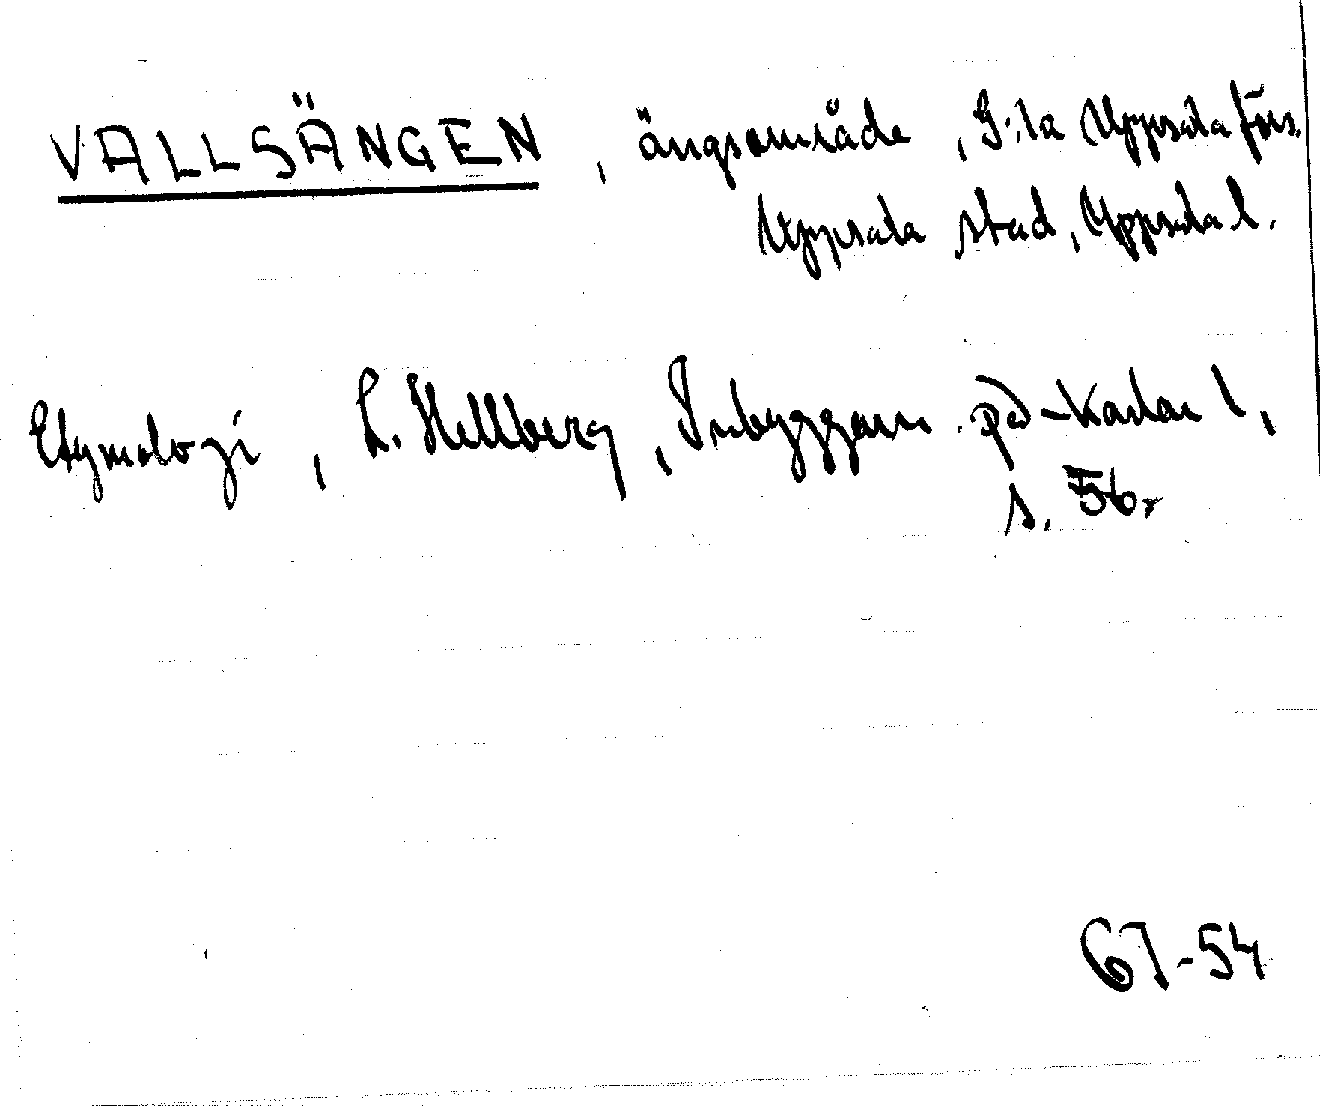 VALLSÄNGEN, ängsområde, G:la Uppsala förs.
Uppsala stad, Uppsala l.
Etymologi, L. Hellberg, Inbyggarn. på -karlar 1,
s. 56.
67-54